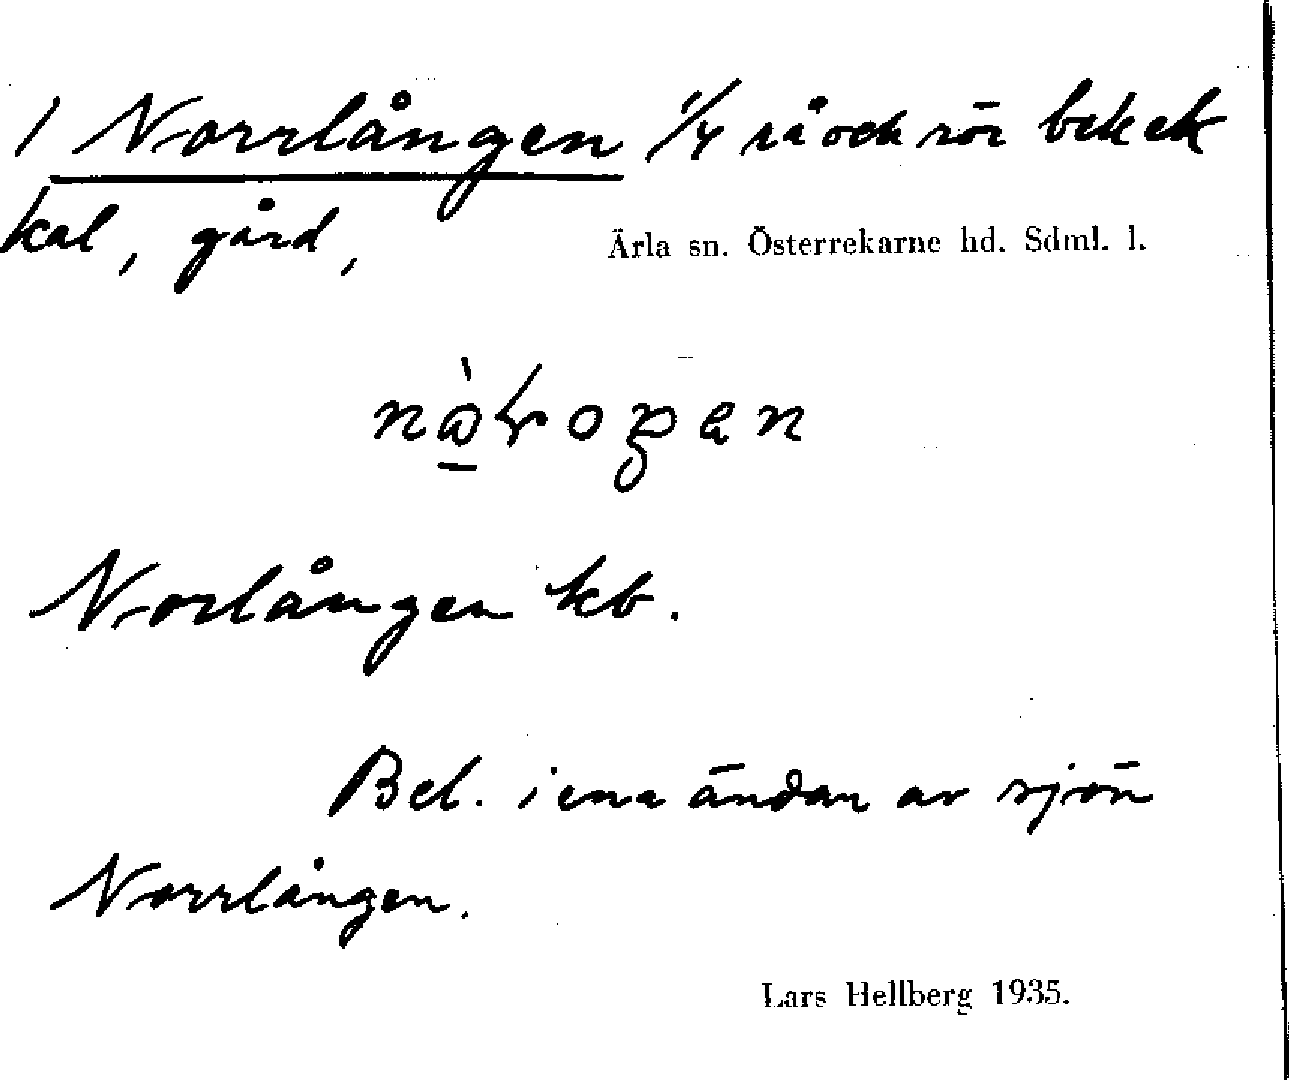 1 Norrlången 1/4 rå och rör
kal, gård,
Ärla sn. Österrekarne hd. Sdml. l.
Norlången kb.
Bel. i ena ändan av sjön
Norrlången.
Lars Hellberg 1935.